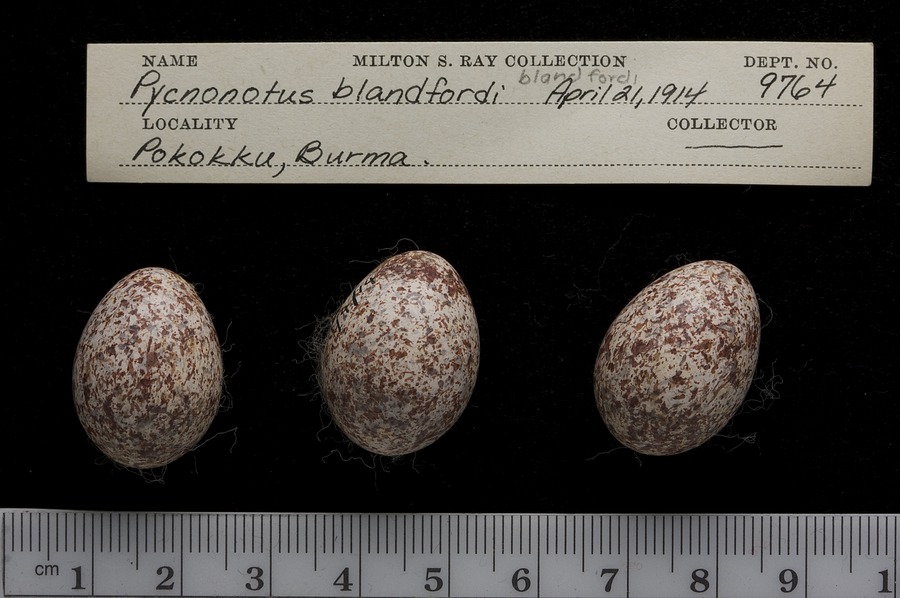 NAME MILTON S. RAY COLLECTION DEPT. NO.
blandfordi
Pycnonotus blandfordi April 21, 1914 9764
LOCALITY COLLECTOR
Pokokku, Burma.
cm 1 2 3 4 5 6 7 8 9 1